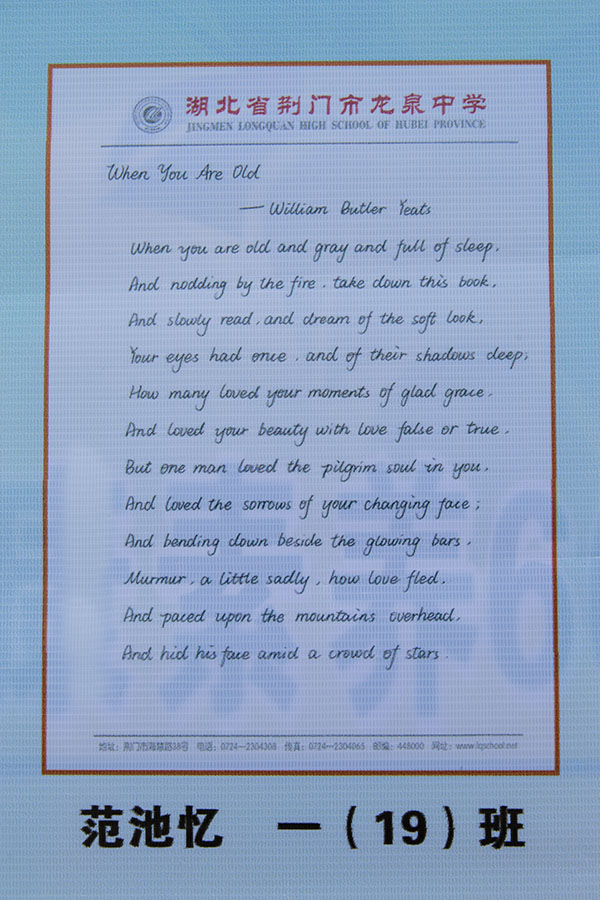 湖北省荆门市龙泉中学
JINGMEN LONGQUAN HIGH SCHOOL OF HUBEI PROVINCE
When You Are Old
— William Butler Yeats
When you are old and gray and full of sleep,
And nodding by the fire, take down this book,
And slowly read, and dream of the soft look,
Your eyes had once, and of their shadows deep;
How many loved your moments of glad grace,
And loved your beauty with love false or true,
But one man loved the pilgrim soul in you,
And loved the sorrows of your changing face;
And bending down beside the glowing bars,
Murmur, a little sadly, how love fled,
And paced upon the mountains overhead,
And hid his face amid a crowd of stars.
地址：荆门市海慧路38号 电话：0724—2304308 传真：0724—2304065 邮编：448000 网址：www.lqschool.net
范池忆 一（19）班